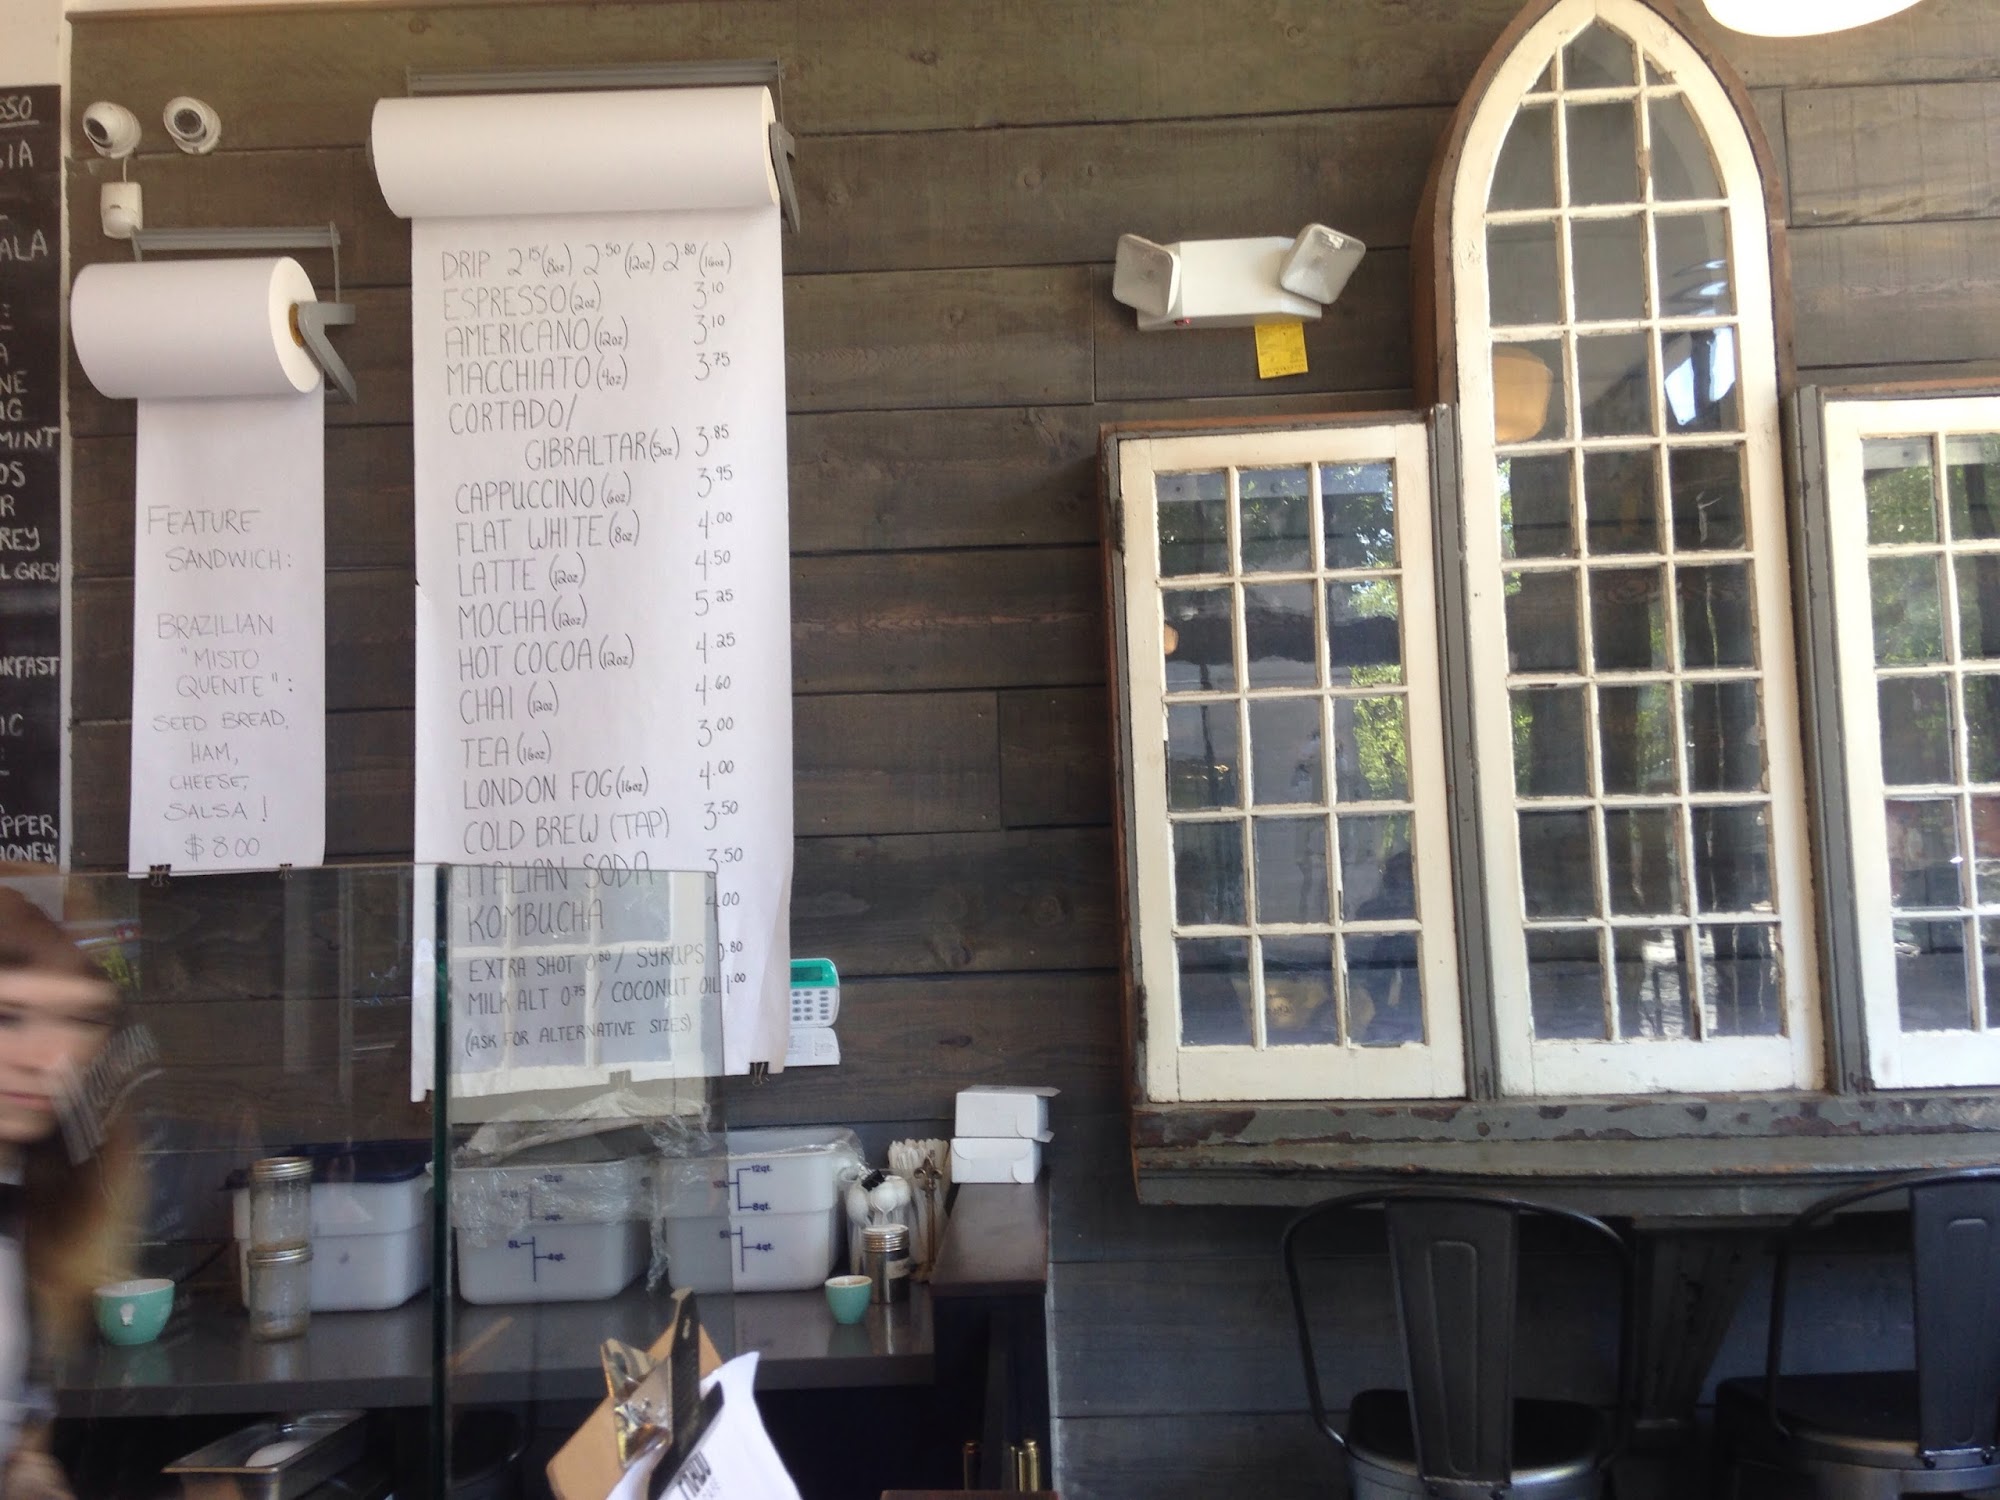 SSO
SIA
ALA
NE
MINT
OS
R
REY
L GREY
KFAST
IC
PPER,
HONEY,
FEATURE
SANDWICH:
BRAZILIAN
"MISTO
QUENTE":
SEED BREAD,
HAM,
CHEESE,
SALSA!
$8.00
DRIP 2.15(8oz) 2.50(12oz) 2.80(16oz)
ESPRESSO(2oz) 3.10
AMERICANO(12oz) 3.10
MACCHIATO(4oz) 3.75
CORTADO/
GIBRALTAR(5oz) 3.85
CAPPUCCINO(6oz) 3.95
FLAT WHITE(8oz) 4.00
LATTE (12oz) 4.50
MOCHA(12oz) 5.25
HOT COCOA(12oz) 4.25
CHAI (12oz) 4.60
TEA(16oz) 3.00
LONDON FOG(16oz) 4.00
COLD BREW (TAP) 3.50
ITALIAN SODA 3.50
KOMBUCHA 4.00
EXTRA SHOT 0.80 / SYRUPS 0.80
MILK ALT 0.75 / COCONUT OIL 1.00
(ASK FOR ALTERNATIVE SIZES)
12qt.
8qt.
4qt.
5L
4qt.